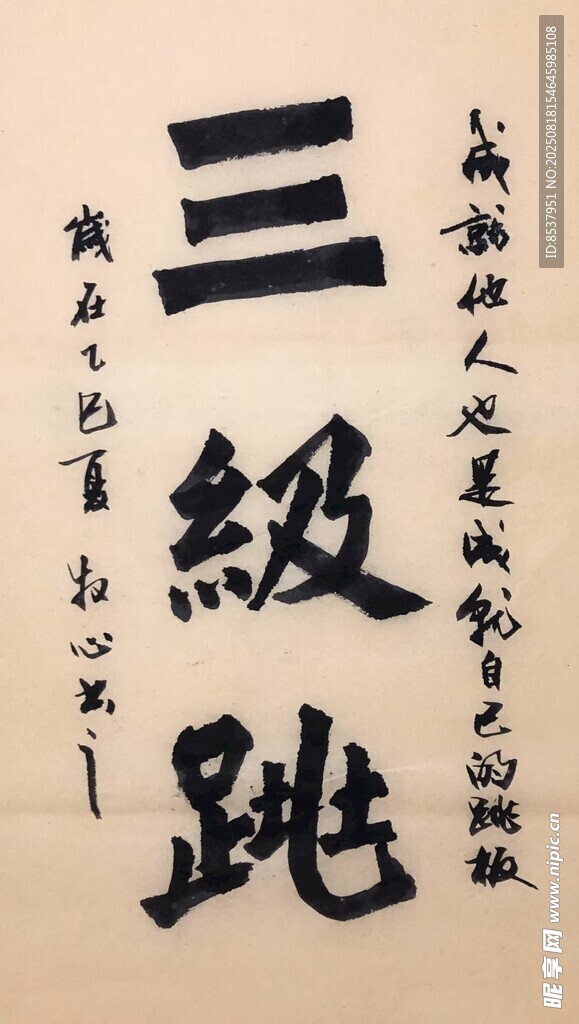 成就他人也是成就自己的跳板
三級跳
歲在乙巳夏 牧心书之
ID:8537951 NO:20250818154645985108
昵享网 www.nipic.cn